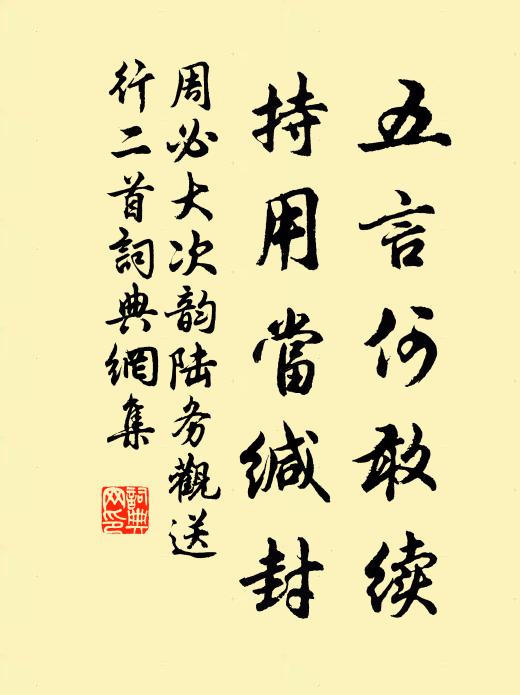 五言何敢续
持用當缄封
周必大次韵陆务觀送
行二首詞典網集
詞典
网印